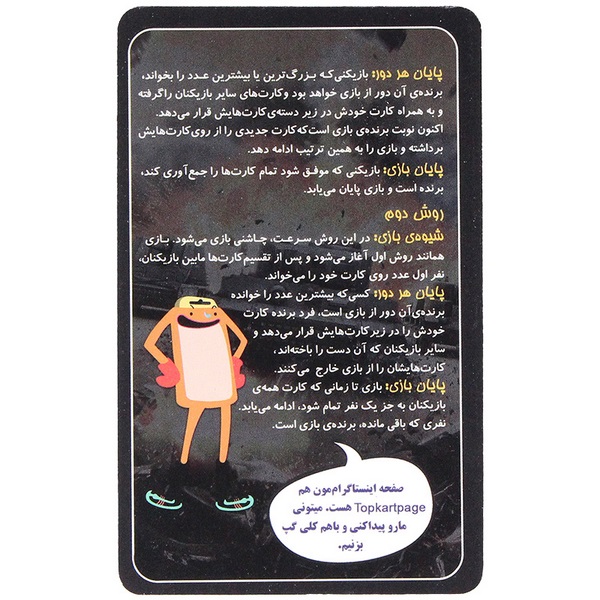 پایان هر دور: بازیکنی‌که بزرگ‌ترین یا بیشترین عدد را بخواند،
برنده‌ی آن دور از بازی خواهد بود وکارت‌های سایر بازیکنان راگرفته
و به همراه کارت خودش در زیر دسته‌ی کارت‌هایش قرار می‌دهد.
اکنون نوبت برنده‌ی بازی است‌که‌کارت جدیدی را از روی‌کارت‌هایش
برداشته و بازی را به همین ترتیب ادامه دهد.
پایان بازی: بازیکنی که موفق شود تمام کارت‌ها را جمع‌آوری کند،
برنده است و بازی پایان می‌یابد.
روش دوم
شیوه‌ی بازی: در این روش سرعت، چاشنی بازی می‌شود. بازی
همانند روش اول آغاز می‌شود و پس از تقسیم‌کارت‌ها مابین بازیکنان،
نفر اول عدد روی کارت خود را می‌خواند.
پایان هر دور: کسی‌که بیشترین عدد را خوانده
برنده‌ی‌آن دور از بازی است، فرد برنده کارت
خودش را در زیرکارت‌هایش قرار می‌دهد و
سایر بازیکنان که آن دست را باخته‌اند،
کارت‌هایشان را از بازی خارج می‌کنند.
پایان بازی: بازی تا زمانی که کارت همه‌ی
بازیکنان به جز یک نفر تمام شود، ادامه می‌یابد.
نفری که باقی مانده، برنده‌ی بازی است.
صفحه اینستاگرام‌مون هم
Topkartpage هست. میتونی
مارو پیداکنی و باهم کلی گپ
بزنیم.